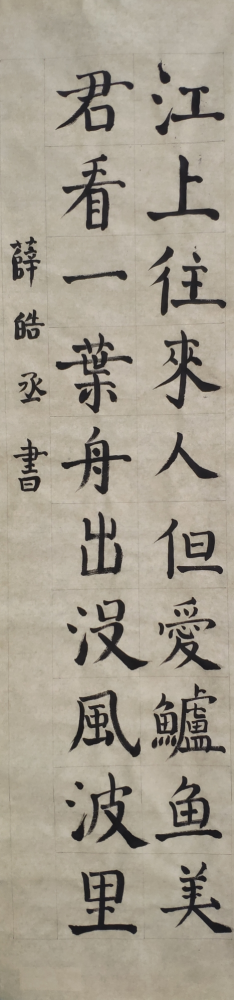 江上往來人但愛鱸鱼美
君看一葉舟出没風波里
薛皓丞書